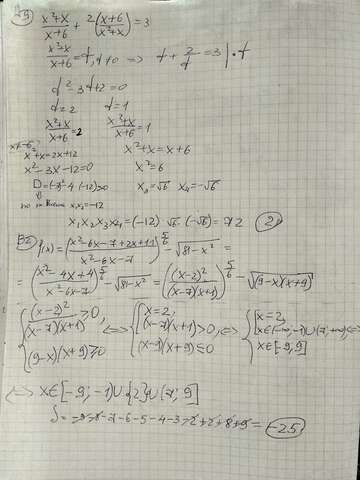 29 (x²+x)/(x+6) + 2((x+6)/(x²+x)) = 3
(x²+x)/(x+6) = t, t≠0 => t + 2/t = 3 | · t
t² - 3t + 2 = 0
t = 2 t = 1
(x²+x)/(x+6) = 2 (x²+x)/(x+6) = 1
x≠-6
x²+x = 2x+12 x²+x = x+6
x² - 3x - 12 = 0 x² = 6
D = (-3)² - 4·(-12) > 0 x₃ = √6 x₄ = -√6
⇓
x₁x₂ = -12
x₁x₂x₃x₄ = (-12)·√6·(-√6) = 72
f(x) = ((x²-6x-7+2x+11)/(x²-6x-7))^(5/6) - √(81-x²) =
= ((x²-4x+4)/(x²-6x-7))^(5/6) - √(81-x²) = ((x-2)²/((x-7)(x+1)))^(5/6) - √((9-x)(x+9))
{ (x-2)²/((x-7)(x+1)) ≥ 0, <=> { [ x=2, <=> { [ x=2,
(x-7)(x+1) > 0, x∈(-∞; -1)∪(7; +∞) <=>
(9-x)(x+9) ≥ 0 (x-9)(x+9) ≤ 0 x∈[-9; 9]
<=> x∈[-9; -1)∪{2}∪(7; 9]
S = -9-8-7-6-5-4-3-2+2+8+9 = -25